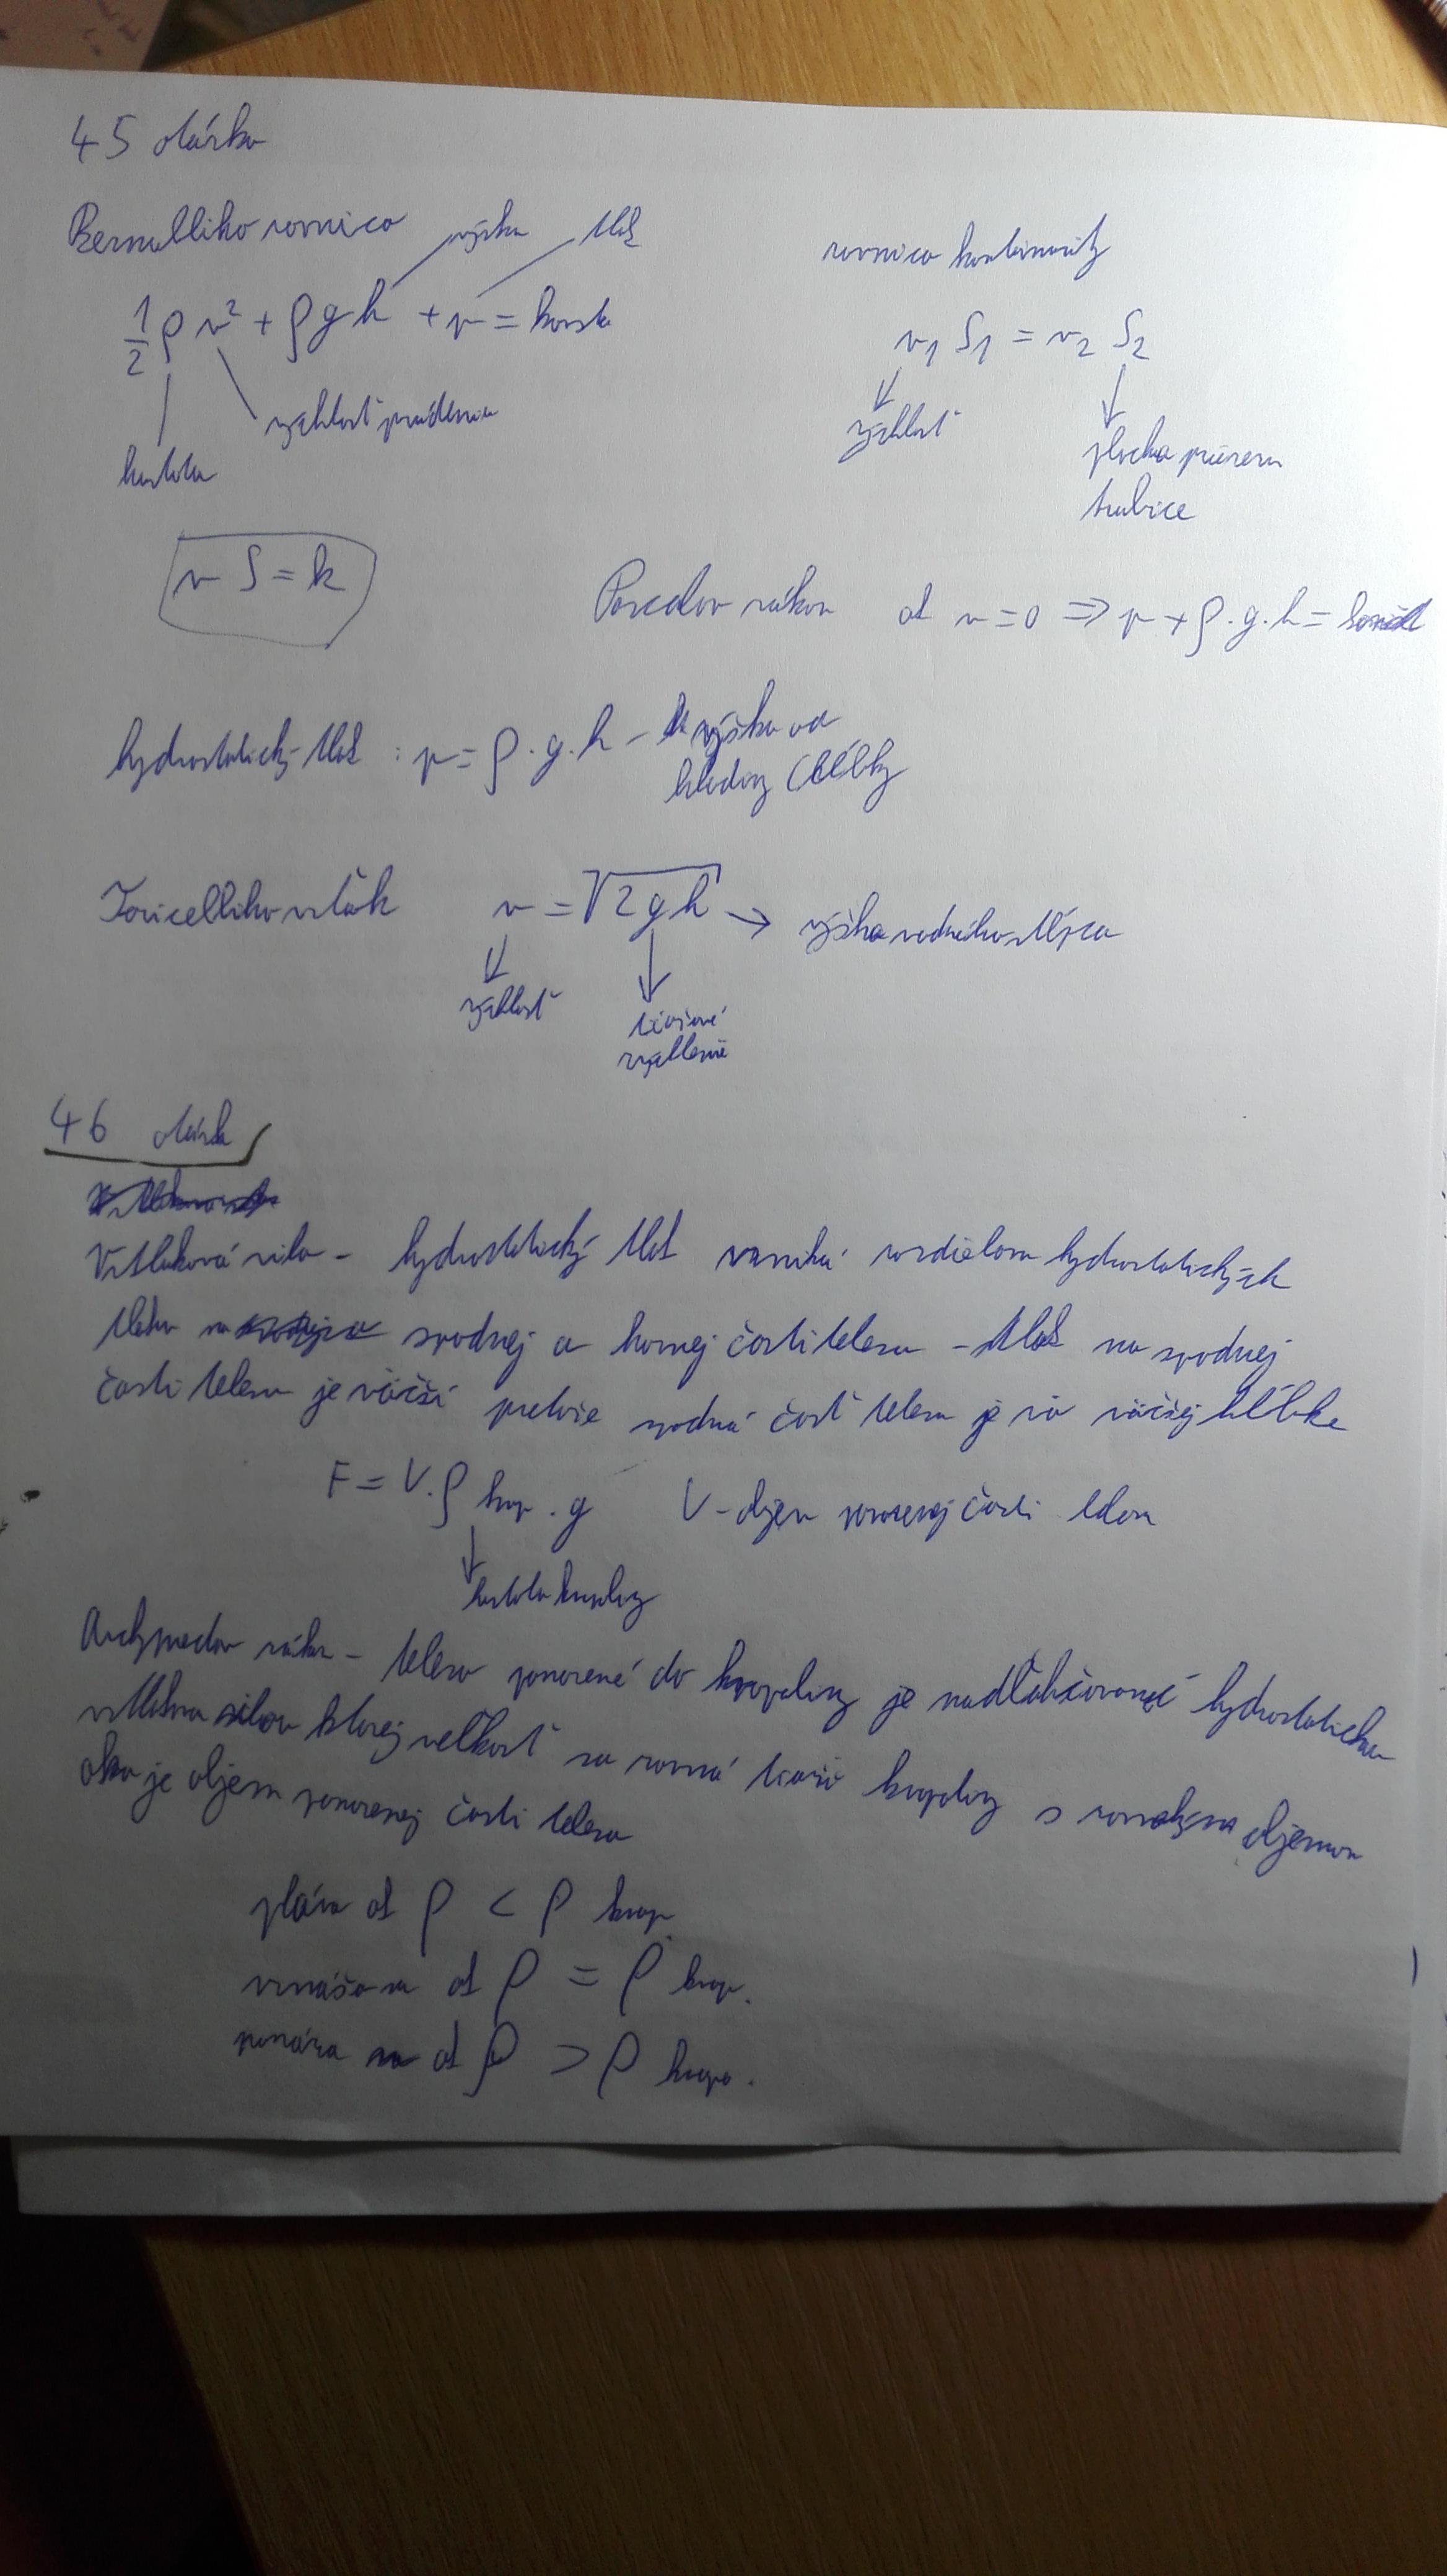 45 otázka
Bernulliho rovnica
výška tlak
½ ρ v² + ρ g h + p = konšt
rýchlosť prúdenia
hustota
rovnica kontinuity
v₁ S₁ = v₂ S₂
rýchlosť
plocha prierezu
trubice
v S = k
Pascalov zákon ak v = 0 ⇒ p + ρ . g . h = konšt
hydrostatický tlak : p = ρ . g . h – výška od
hladiny (hĺbky
Toricelliho vzťah v = √2gh → výška vodného stĺpca
rýchlosť
tiažové
zrýchlenie
46 otázka
Vztlaková sila – hydrostatický tlak vzniká rozdielom hydrostatických
tlakov na spodnej a hornej časti telesa – tlak na spodnej
časti telesa je väčší pretože spodná časť telesa je vo väčšej hĺbke
F = V . ρ kvap . g V – objem ponorenej časti telesa
hustota kvapaliny
Archymedov zákon – teleso ponorené do kvapaliny je nadľahčované hydrostatickou
vztlakovou silou ktorej veľkosť sa rovná tiaži kvapaliny s rovnakým objemom
ako je objem ponorenej časti telesa
pláva ak ρ < ρ kvap.
vznáša sa ak ρ = ρ kvap.
ponára sa ak ρ > ρ kvapa.